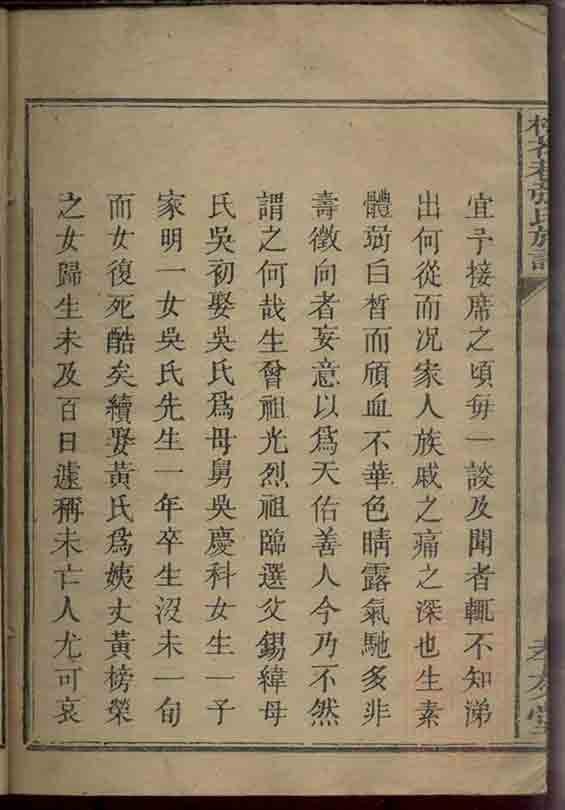 張氏族譜
孝友堂
宜予接席之頃每一談及聞者輒不知涕
出何從而况家人族戚之痛之深也生素
體弱白皙而頎血不華色睛露氣馳多非
壽徵向者妄意以為天佑善人今乃不然
謂之何哉生曾祖光烈祖臨選父錫緯母
氏吳初娶吳氏為母舅吳慶科女生一子
家明一女吳氏先生一年卒生沒未一旬
而女復死酷矣續娶黃氏為姨丈黃榜榮
之女歸生未及百日遽稱未亡人尤可哀